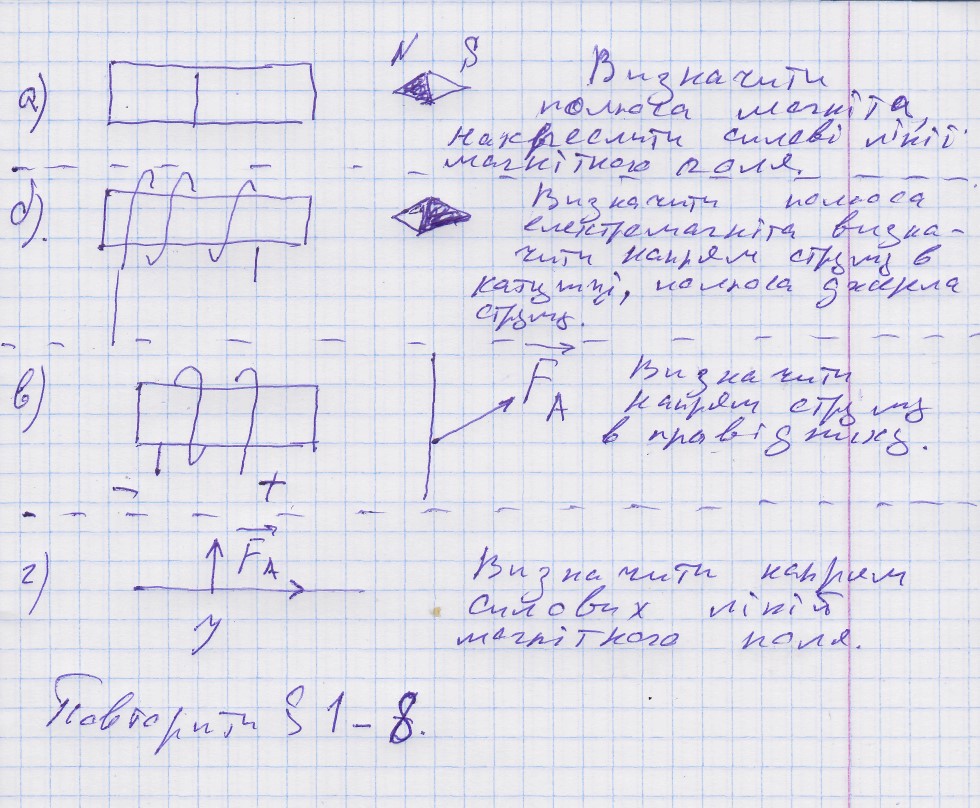 а)
N S
Визначити
полюса магніта,
накреслити силові лінії
магнітного поля.
б).
Визначити полюса
електромагніта визна-
чити напрям струму в
катушці, полюса джерела
струму.
в)
F A
Визначити
напрям струму
в провіднику.
- +
г)
F A
Визначити напрям
силових ліній
магнітного поля.
Повторити § 1-8.